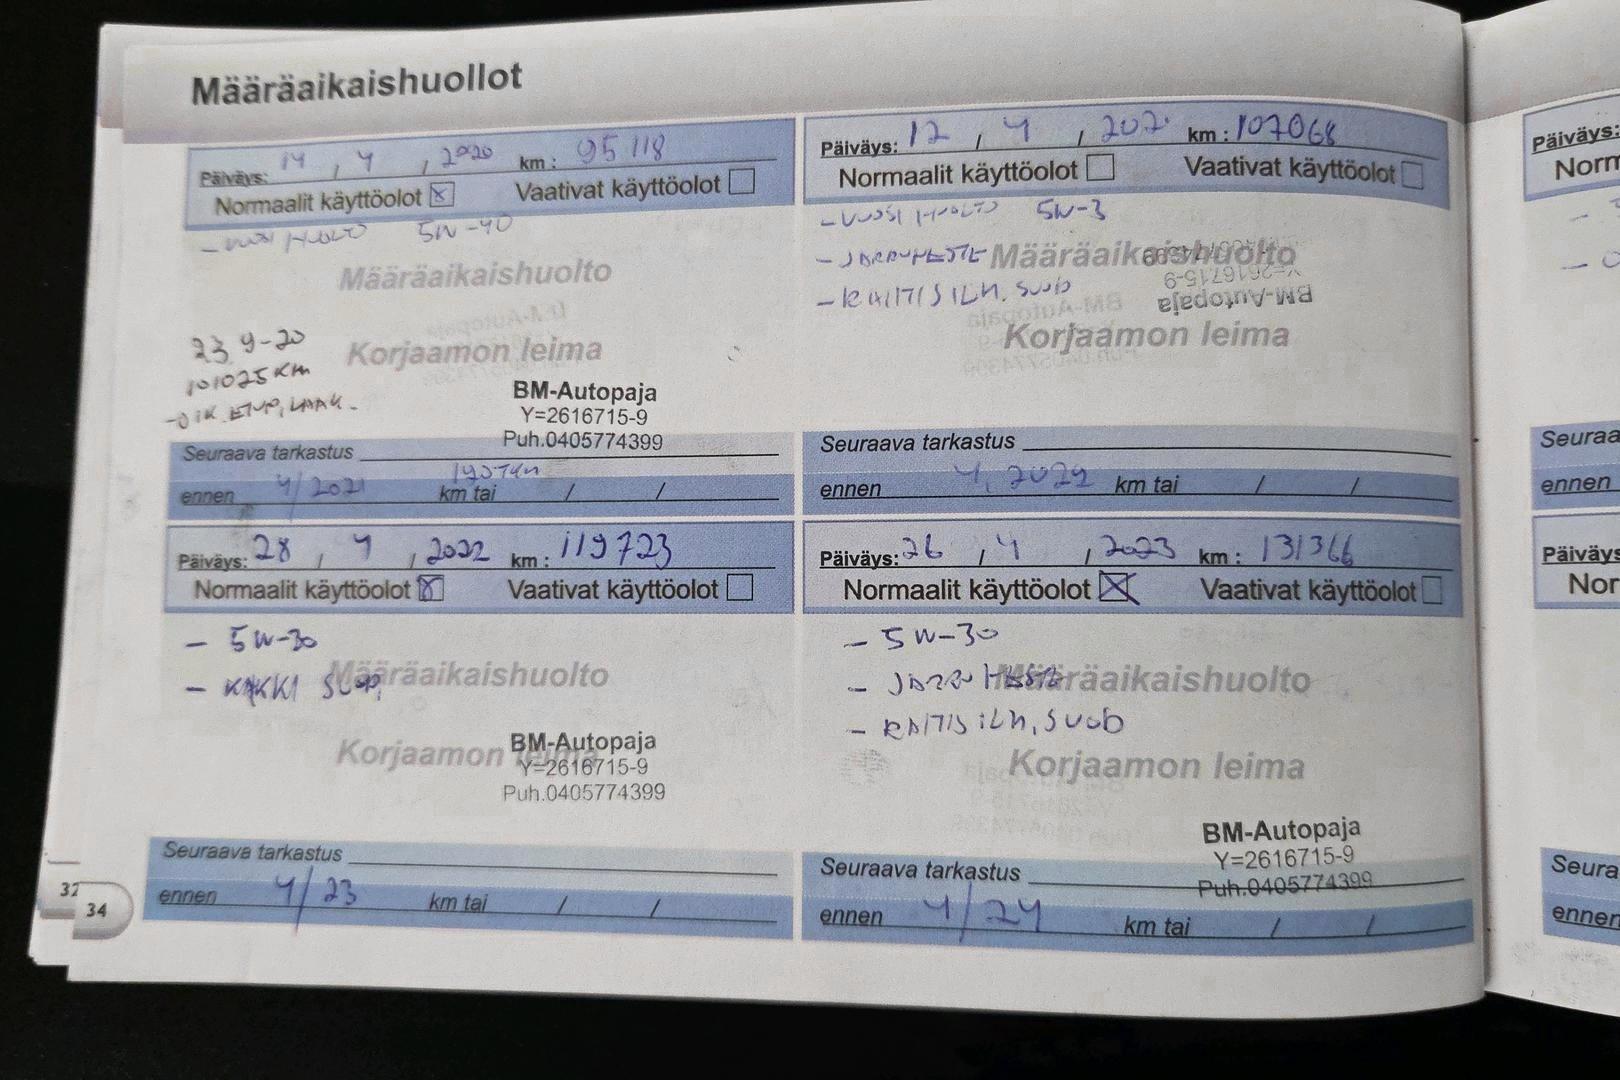 Määräaikaishuollot
Päiväys: 14 , 4 , 2020 km : 95 118
Normaalit käyttöolot x Vaativat käyttöolot
- VUOSI HUOLTO 5W-40
Määräaikaishuolto
23.9-20
Korjaamon leima
101025 KM
- OIK. ETUP. LAAK.
BM-Autopaja
Y=2616715-9
Puh.0405774399
Seuraava tarkastus
ennen 4/2021 km tai / /
Päiväys: 12 , 4 , 202 km : 107068
Normaalit käyttöolot Vaativat käyttöolot
- VUOSI HUOLTO 5W-3
- JARRUNESTE Määräaikaishuolto
- RAITIS ILM. SUOD
Y=2616715-9
BM-Autopaja
Korjaamon leima
Seuraava tarkastus
ennen 4. 2022 km tai / /
Päiväys: 28 , 4 , 2022 km : 119723
Normaalit käyttöolot x Vaativat käyttöolot
- 5W-30
- KAKKI SUOD. Määräaikaishuolto
Korjaamon leima
BM-Autopaja
Y=2616715-9
Puh.0405774399
Seuraava tarkastus
ennen 4/23 km tai / /
Päiväys: 26 , 4 , 2023 km : 131366
Normaalit käyttöolot X Vaativat käyttöolot
- 5W-30
- JARRU NESTE Määräaikaishuolto
- RAITIS ILM. SUOD
Korjaamon leima
BM-Autopaja
Y=2616715-9
Puh.0405774399
Seuraava tarkastus
ennen 4/24 km tai / /
32
34
Päiväys:
Norm
Seuraa
ennen
Päiväys
Nor
Seura
ennen